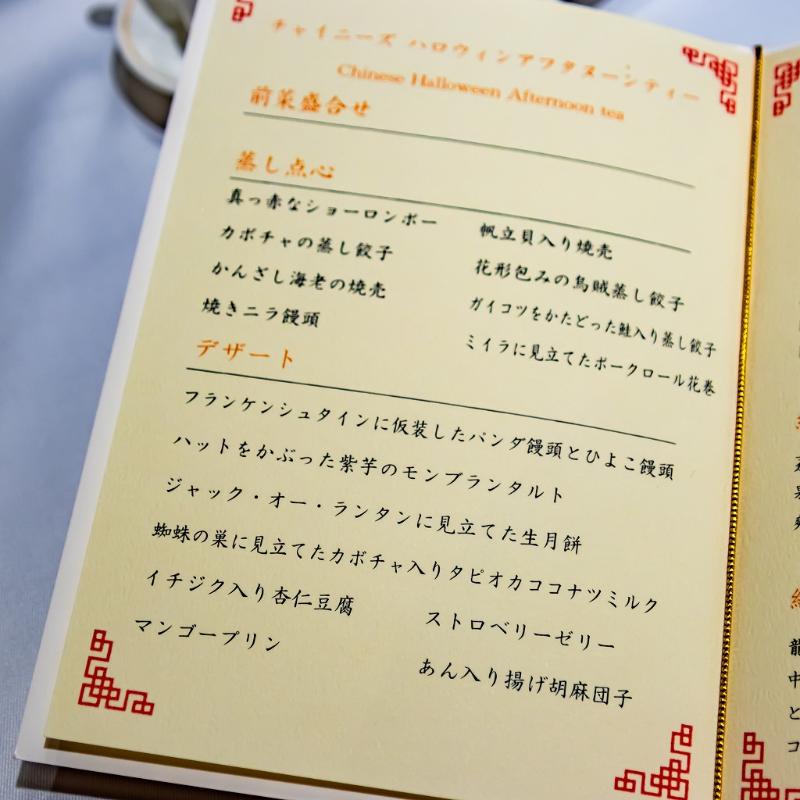 チャイニーズ ハロウィンアフタヌーンティー
Chinese Halloween Afternoon tea
前菜盛合せ
蒸し点心
真っ赤なショーロンポー
カボチャの蒸し餃子
かんざし海老の焼売
焼きニラ饅頭
帆立貝入り焼売
花形包みの烏賊蒸し餃子
ガイコツをかたどった鮭入り蒸し餃子
ミイラに見立てたポークロール花巻
デザート
フランケンシュタインに仮装したパンダ饅頭とひよこ饅頭
ハットをかぶった紫芋のモンブランタルト
ジャック・オー・ランタンに見立てた生月餅
蜘蛛の巣に見立てたカボチャ入りタピオカココナツミルク
イチジク入り杏仁豆腐
ストロベリーゼリー
マンゴープリン
あん入り揚げ胡麻団子
龍
中
と
コ